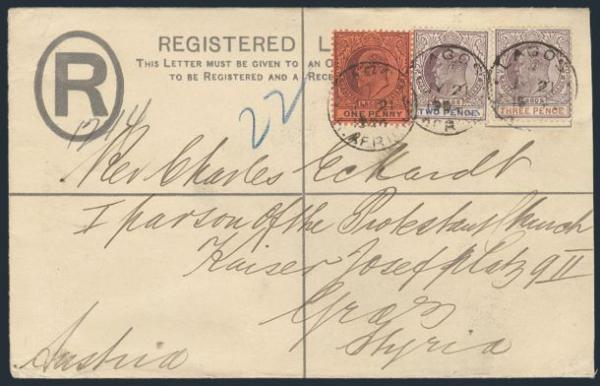 REGISTERED L
THIS LETTER MUST BE GIVEN TO AN O
TO BE REGISTERED AND A RECE
R
ONE PENNY
TWO PENCE
THREE PENCE
LAGOS
21
W. AFRICA
22
Rev Charles Eckardt
I parson of the Protestant Church
Kaiser Josefplatz 9 II
Graz
Styria
Austria